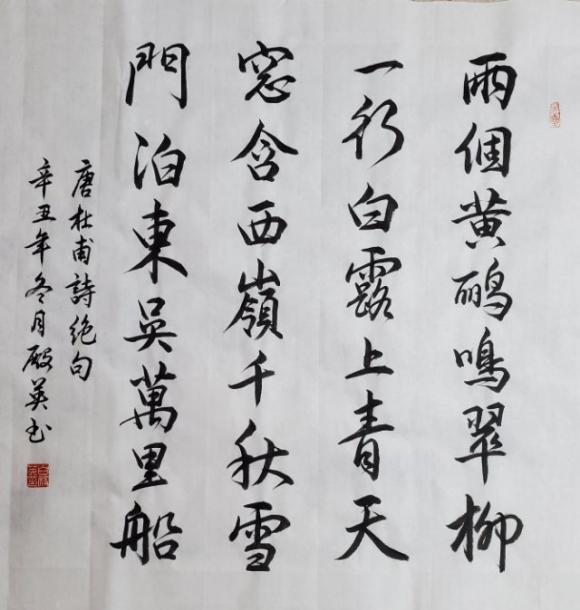 兩個黄鹂鳴翠柳
一行白露上青天
窓含西嶺千秋雪
門泊東吳萬里船
唐杜甫詩絶句
辛丑年冬月殿英书